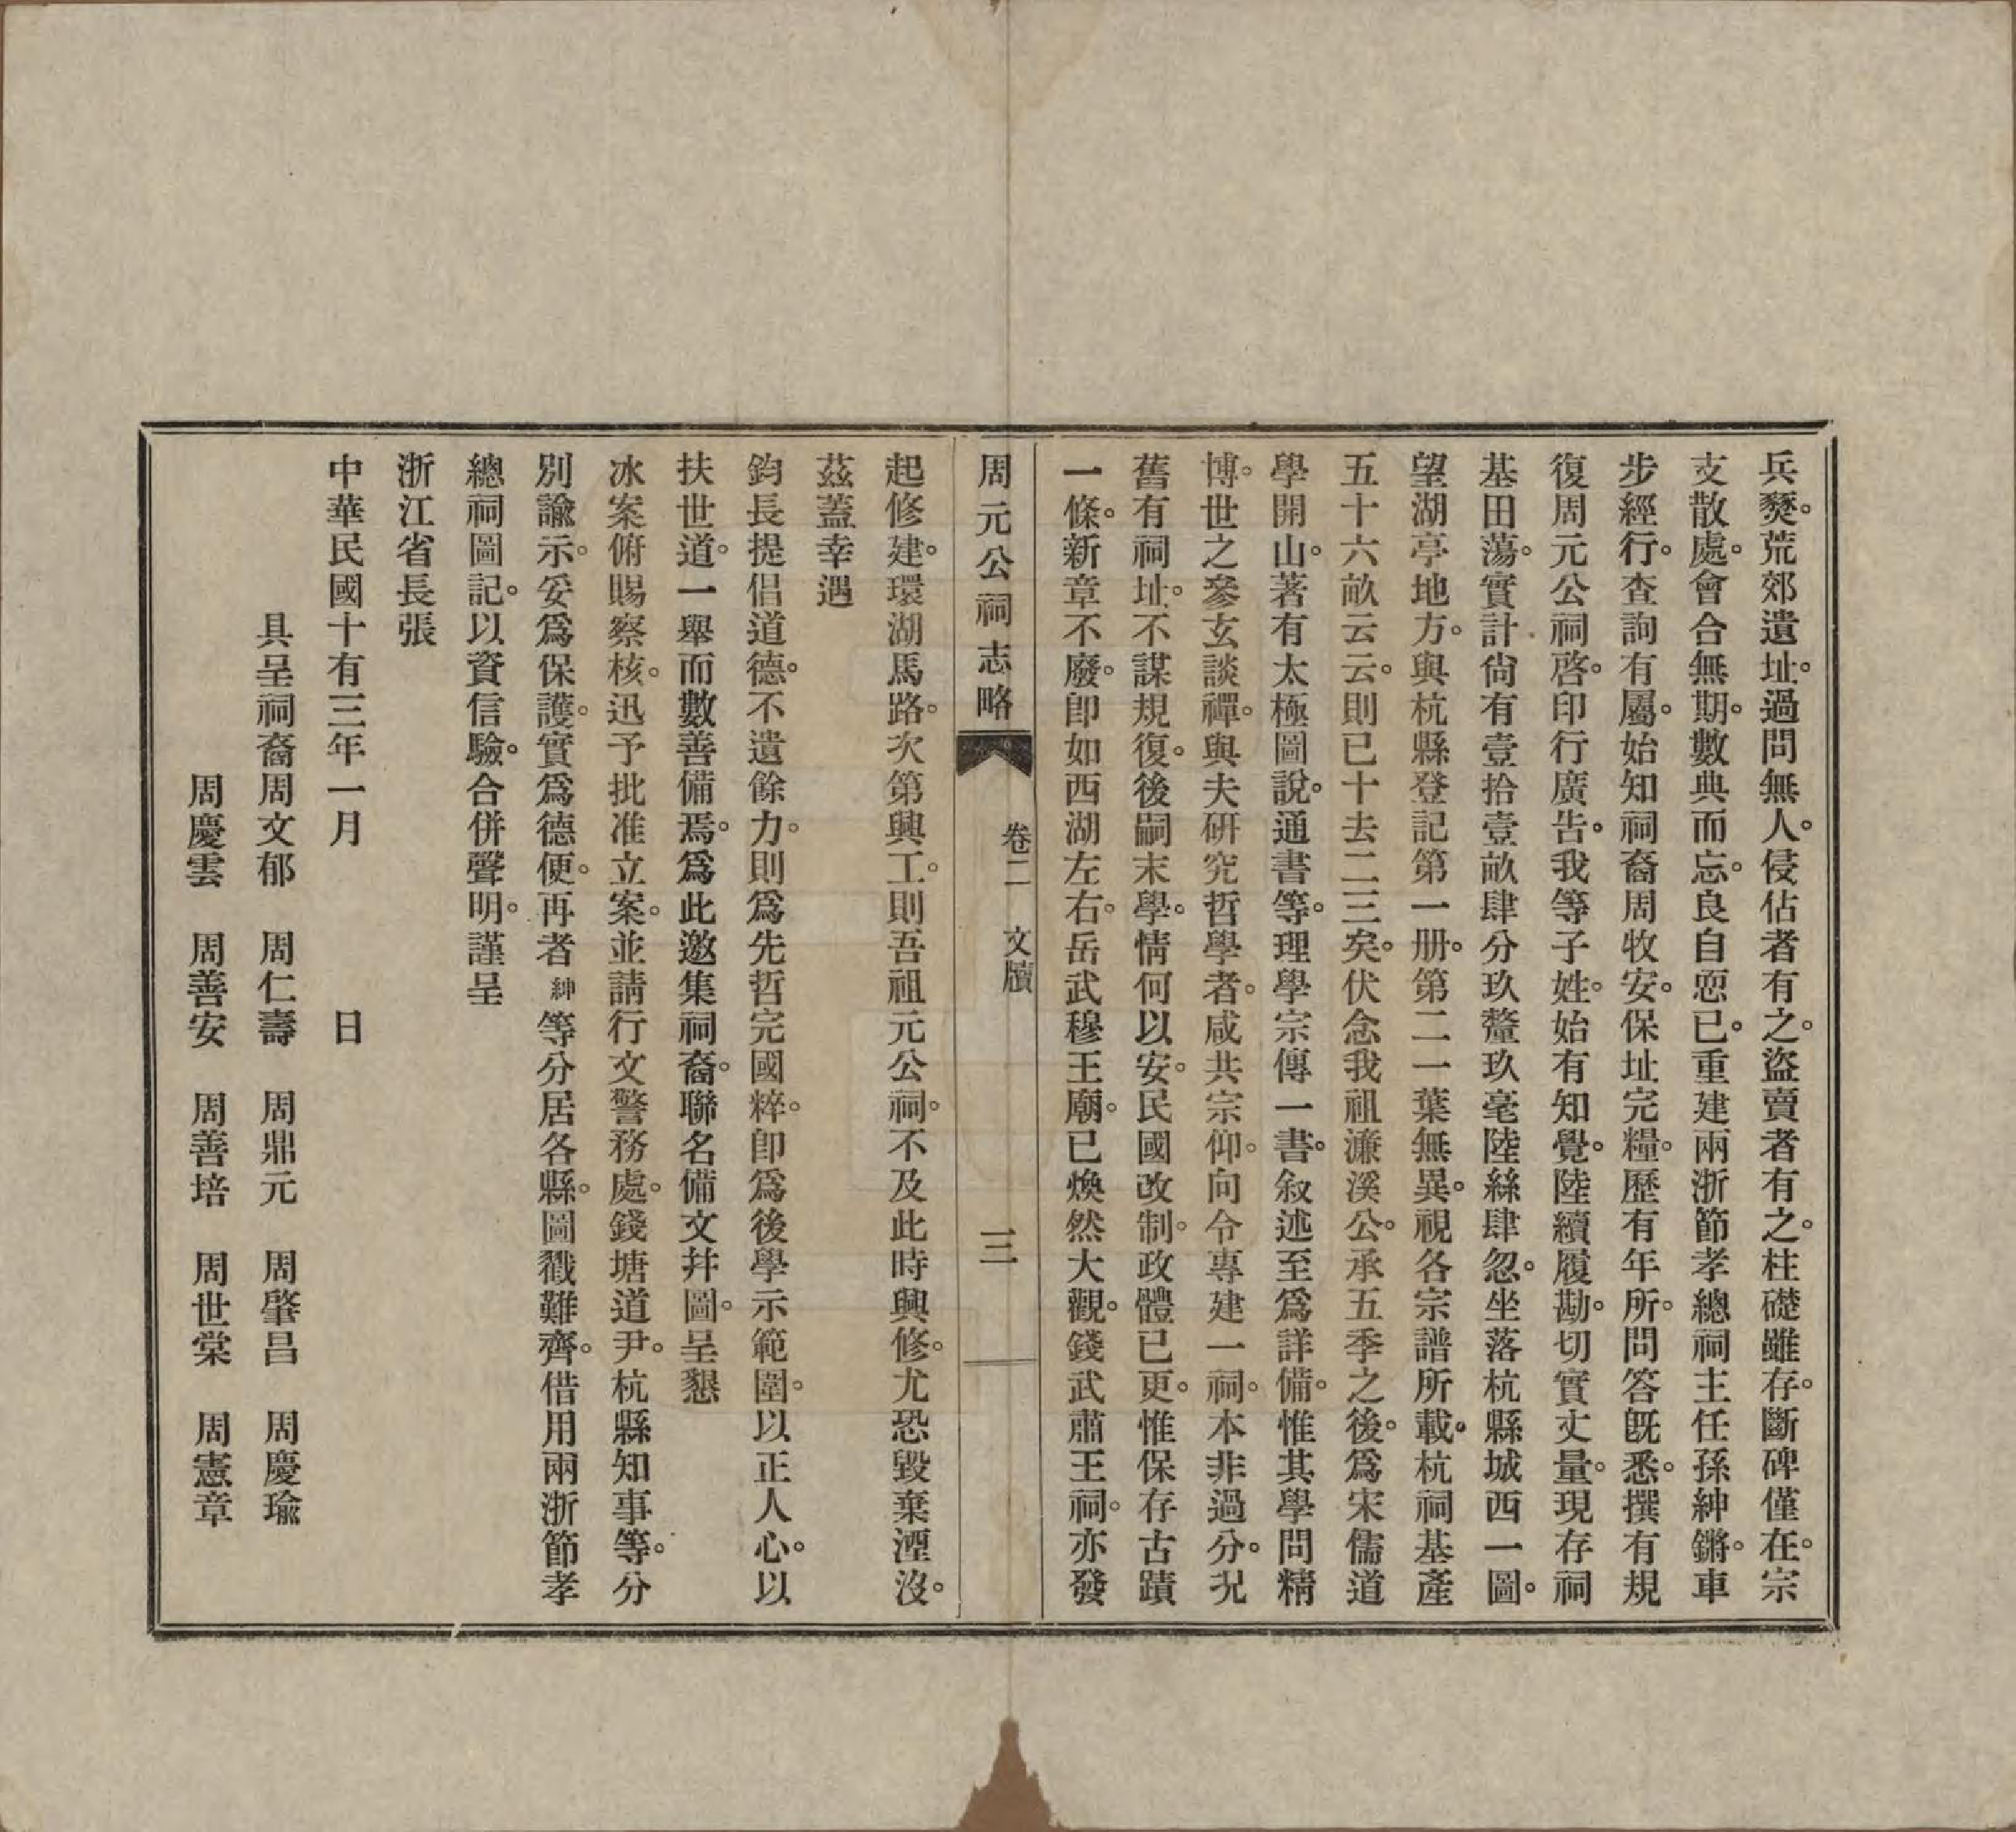 兵燹。荒郊遺址。過問無人。侵佔者有之。盜賣者有之。柱礎雖存。斷碑僅在。宗
支散處。會合無期。數典而忘。良自恧已。重建兩浙節孝總祠主任孫紳鏘。車
步經行。查詢有屬。始知祠裔周牧安。保址完糧。歷有年所。問答旣悉。撰有規
復周元公祠啓。印行廣告。我等子姓。始有知覺。陸續履勘。切實丈量。現存祠
基田蕩。實計尙有壹拾壹畝肆分玖釐玖毫陸絲肆忽。坐落杭縣城西一圖。
望湖亭地方。與杭縣登記第一册。第二一葉無異。視各宗譜所載。杭祠基產
五十六畝云云。則已十去二三矣。伏念我祖濂溪公。承五季之後。爲宋儒道
學開山。著有太極圖說。通書等。理學宗傳一書。叙述至爲詳備。惟其學問精
博。世之參玄談禪。與夫硏究哲學者。咸共宗仰。向令專建一祠。本非過分。況
舊有祠址。不謀規復。後嗣末學。情何以安。民國改制。政體已更。惟保存古蹟
一條。新章不廢。卽如西湖左右。岳武穆王廟。已煥然大觀。錢武肅王祠。亦發
周元公祠志略 卷二 文牘 三
起修建。環湖馬路。次第興工。則吾祖元公祠。不及此時興修。尤恐毀棄湮沒。
茲蓋幸遇
鈞長提倡道德。不遺餘力。則爲先哲完國粹。卽爲後學示範圍。以正人心。以
扶世道。一舉而數善備焉。爲此邀集祠裔。聯名備文幷圖。呈懇
冰案俯賜察核。迅予批准立案。並請行文警務處。錢塘道尹。杭縣知事等。分
別諭示。妥爲保護。實爲德便。再者紳等分居各縣。圖戳難齊。借用兩浙節孝
總祠圖記。以資信驗。合併聲明。謹呈
浙江省長張
中華民國十有三年一月 日
具呈祠裔周文郁 周仁壽 周鼎元 周肇昌 周慶瑜
周慶雲 周善安 周善培 周世棠 周憲章